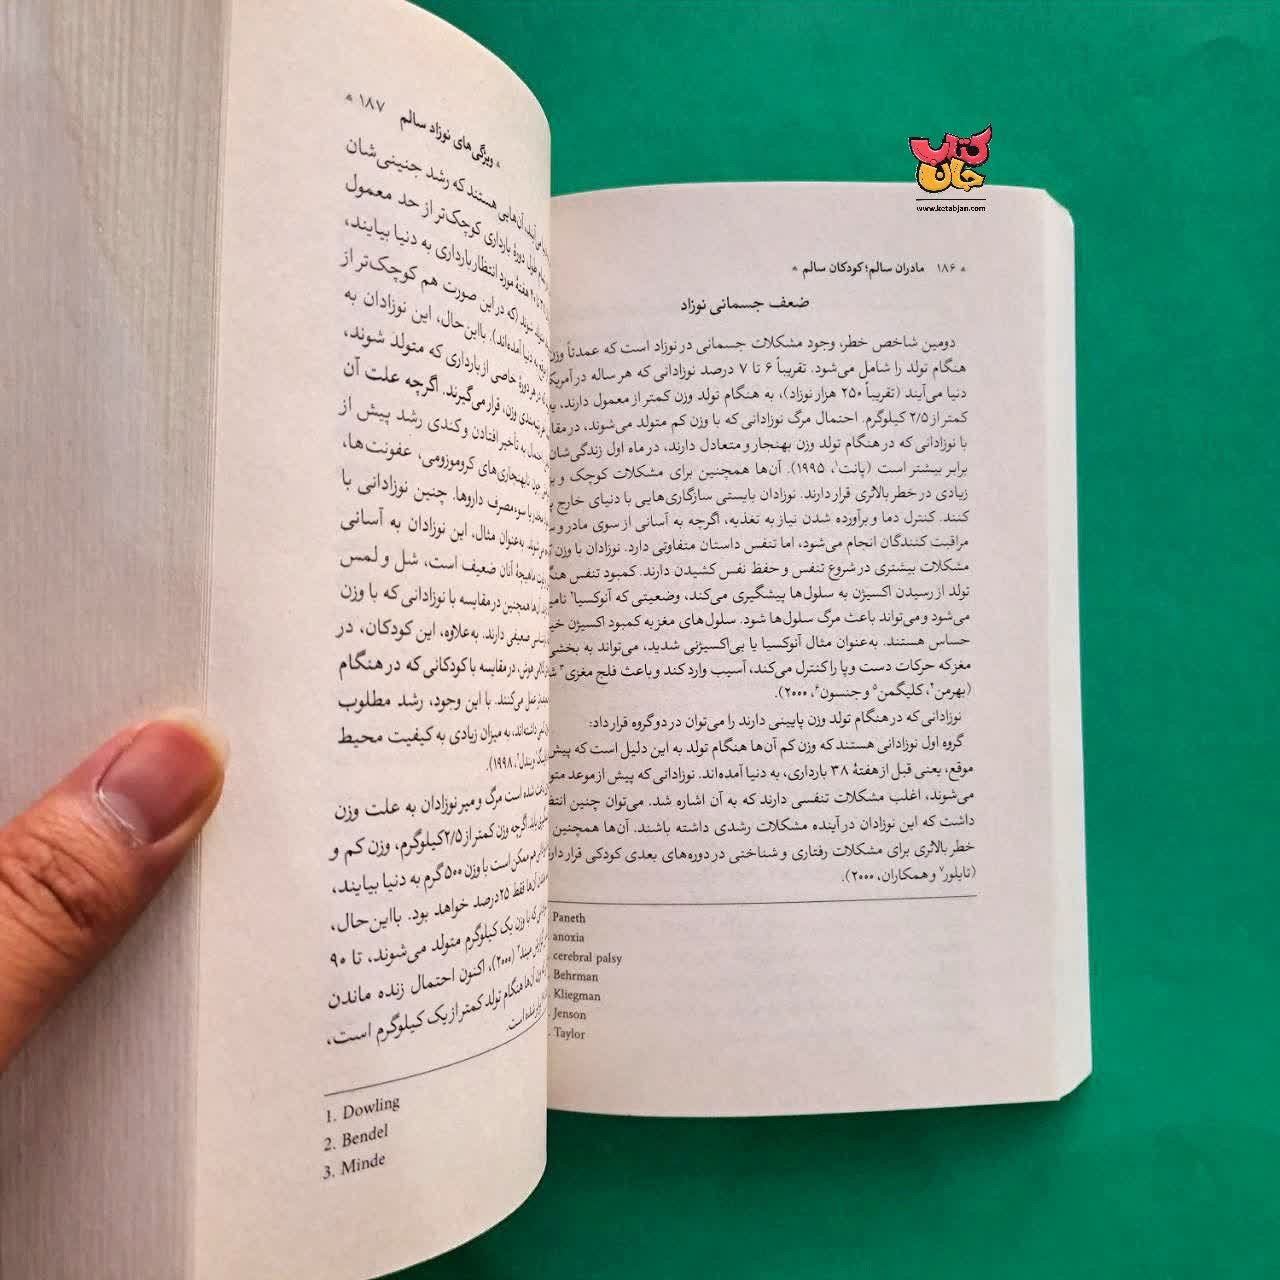 کتاب
جان
www.ketabjan.com
۱۸۶ مادران سالم؛ کودکان سالم
ضعف جسمانی نوزاد
دومین شاخص خطر، وجود مشکلات جسمانی در نوزاد است که عمدتاً وزن
هنگام تولد را شامل می‌شود. تقریباً ۶ تا ۷ درصد نوزادانی که هر ساله در
دنیا می‌آیند (تقریباً ۲۵۰ هزار نوزاد)، به هنگام تولد وزن کمتر از معمول دارند،
کمتر از ۲/۵ کیلوگرم. احتمال مرگ نوزادانی که با وزن کم متولد می‌شوند، در
با نوزادانی که در هنگام تولد وزن بهنجار و متعادل دارند، در ماه اول زندگی‌شان
برابر بیشتر است (پانت۱، ۱۹۹۵). آن‌ها همچنین برای مشکلات کوچک و
زیادی در خطر بالاتری قرار دارند. نوزادان بایستی سازگاری‌هایی با دنیای خارج
کنند. کنترل دما و برآورده شدن نیاز به تغذیه، اگرچه به آسانی از سوی مادر و
مراقبت کنندگان انجام می‌شود، اما تنفس داستان متفاوتی دارد. نوزادان با وزن
مشکلات بیشتری در شروع تنفس و حفظ نفس کشیدن دارند. کمبود تنفس
تولد از رسیدن اکسیژن به سلول‌ها پیشگیری می‌کند، وضعیتی که آنوکسیا۲
می‌شود و می‌تواند باعث مرگ سلول‌ها شود. سلول‌های مغز به کمبود اکسیژن
حساس هستند. به‌عنوان مثال آنوکسیا یا بی‌اکسیژنی شدید، می‌تواند به بخشی
مغز که حرکات دست و پا را کنترل می‌کند، آسیب وارد کند و باعث فلج مغزی۳
(بهرمن۴، کلیگمن۵ و جنسون۶، ۲۰۰۰).
نوزادانی که در هنگام تولد وزن پایینی دارند را می‌توان در دو گروه قرار داد:
گروه اول نوزادانی هستند که وزن کم آن‌ها هنگام تولد به این دلیل است که پیش
موقع، یعنی قبل از هفتهٔ ۳۸ بارداری، به دنیا آمده‌اند. نوزادانی که پیش از موعد
می‌شوند، اغلب مشکلات تنفسی دارند که به آن اشاره شد. می‌توان چنین
داشت که این نوزادان در آینده مشکلات رشدی داشته باشند. آن‌ها همچنین
خطر بالاتری برای مشکلات رفتاری و شناختی در دوره‌های بعدی کودکی قرار
(تایلور۷ و همکاران، ۲۰۰۰).
Paneth
anoxia
cerebral palsy
Behrman
Kliegman
Jenson
Taylor
ویژگی‌های نوزاد سالم ۱۸۷
آن‌هایی هستند که رشد جنینی‌شان
طول دورهٔ بارداری کوچک‌تر از حد معمول
هفتهٔ مورد انتظار بارداری به دنیا بیایند،
شوند (که در این صورت هم کوچک‌تر از
به دنیا آمده‌اند). بااین‌حال، این نوزادان به
در هر دورهٔ خاصی از بارداری که متولد شوند،
وزن، قرار می‌گیرند. اگرچه علت آن
به تأخیر افتادن و کندی رشد پیش از
چون نابهنجاری‌های کروموزومی، عفونت‌ها،
یا سوءمصرف داروها. چنین نوزادانی با
به‌عنوان مثال، این نوزادان به آسانی
ماهیچهٔ آنان ضعیف است، شل و لمس
همچنین در مقایسه با نوزادانی که با وزن
ضعیفی دارند. به‌علاوه، این کودکان، در
هوش، در مقایسه با کودکانی که در هنگام
عمل می‌کنند. با این وجود، رشد مطلوب
به میزان زیادی به کیفیت محیط
بندل۲، ۱۹۹۸).
شده است مرگ و میر نوزادان به علت وزن
اگرچه وزن کمتر از ۲/۵ کیلوگرم، وزن کم و
ممکن است با وزن ۵۰۰ گرم به دنیا بیایند،
آن‌ها فقط ۲۵ درصد خواهد بود. بااین‌حال،
که با وزن یک کیلوگرم متولد می‌شوند، تا ۹۰
(۲۰۰۰)، اکنون احتمال زنده ماندن
آن‌ها هنگام تولد کمتر از یک کیلوگرم است،
شده است.
1. Dowling
2. Bendel
3. Minde